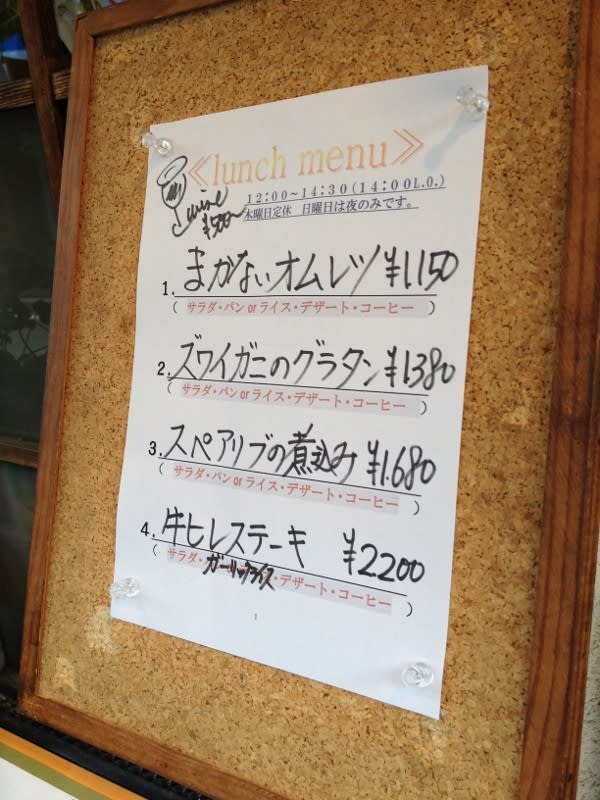 ≪lunch menu≫
wine
¥500~
12:00~14:30(14:00L.O.)
木曜日定休 日曜日は夜のみです。
1. まかないオムレツ ¥1150
( サラダ・パンorライス・デザート・コーヒー )
2. ズワイガニのグラタン ¥1380
( サラダ・パンorライス・デザート・コーヒー )
3. スペアリブの煮込み ¥1.680
( サラダ・パンorライス・デザート・コーヒー )
4. 牛ヒレステーキ ¥2200
( サラダ・ガーリックライス・デザート・コーヒー )
1